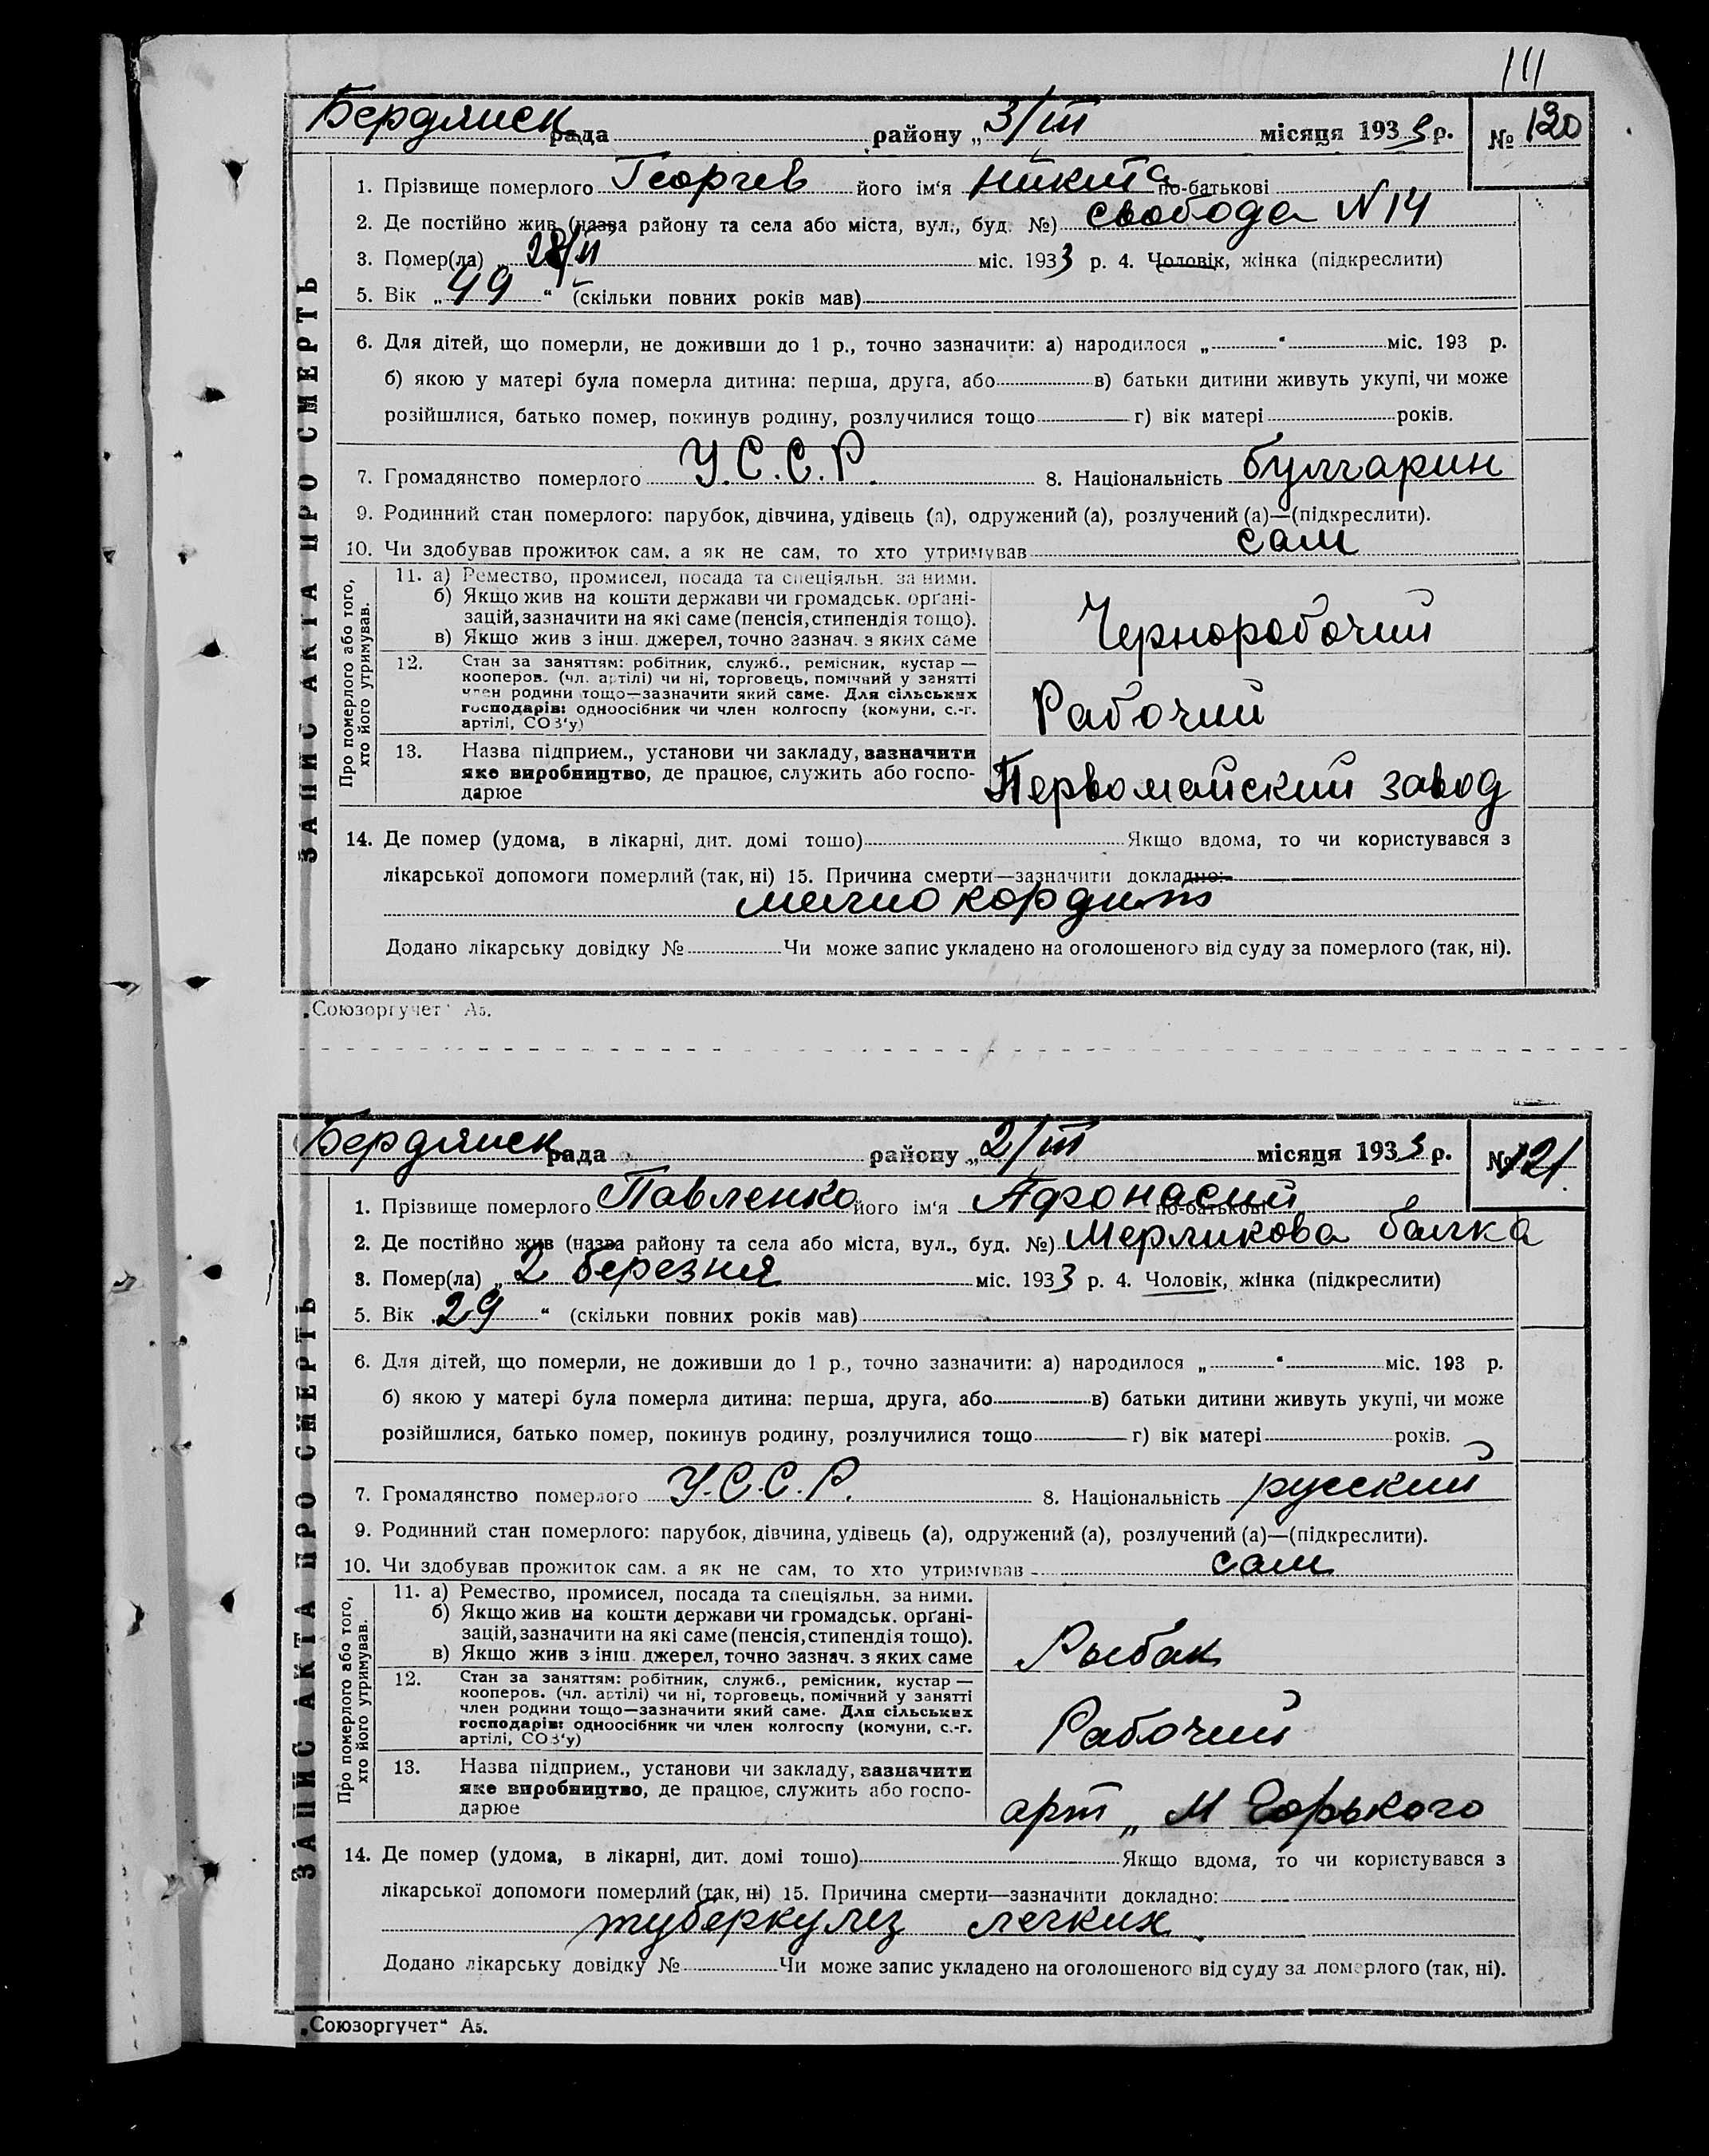 111
Бердянск рада району „ 3/III місяця 1933 р. № 120
ЗАПИС АКТА ПРО СМЕРТЬ
1. Прізвище померлого Георгев його ім‘я Никита по-батькові
2. Де постійно жив (назва району та села або міста, вул., буд. №) свобода N 14
3. Помер(ла) „ 28/II міс. 1933 р. 4. Чоловік, жінка (підкреслити)
5. Вік „49“ (скільки повних років мав)
6. Для дітей, що померли, не доживши до 1 р., точно зазначити: а) народилося „ “ міс. 193 р.
б) якою у матері була померла дитина: перша, друга, або в) батьки дитини живуть укупі, чи може
розійшлися, батько помер, покинув родину, розлучилися тощо г) вік матері років.
7. Громадянство померлого У.С.С.Р. 8. Національність булгарин
9. Родинний стан померлого: парубок, дівчина, удівець (а), одружений (а), розлучений (а)—(підкреслити).
10. Чи здобував прожиток сам, а як не сам, то хто утримував сам
Про померлого або того, хто його утримував.
11. а) Ремество, промисел, посада та спеціяльн. за ними.
б) Якщо жив на кошти держави чи громадськ. орґані-
зацій, зазначити на які саме (пенсія, стипендія тощо).
в) Якщо жив з інш. джерел, точно зазнач. з яких саме
Чернорабочий
12. Стан за заняттям: робітник, служб., ремісник, кустар —
кооперов. (чл. артілі) чи ні, торговець, помічний у занятті
член родини тощо—зазначити який саме. Для сільських
господарів: одноосібник чи член колгоспу (комуни, с.-г.
артілі, СОЗ‘у)
Рабочий
13. Назва підприєм., установи чи закладу, зазначити
яке виробництво, де працює, служить або госпо-
дарює
Первомайский завод
14. Де помер (удома, в лікарні, дит. домі тошо) Якщо вдома, то чи користувався з
лікарської допомоги померлий (так, ні) 15. Причина смерти—зазначити докладно:
миокордит
Додано лікарську довідку № Чи може запис укладено на оголошеного від суду за померлого (так, ні).
„Союзоргучет“ А5.
Бердянск рада району „ 2/III місяця 1933 р. № 121.
ЗАПИС АКТА ПРО СМЕРТЬ
1. Прізвище померлого Павленко його ім‘я Афонасий по-батькові
2. Де постійно жив (назва району та села або міста, вул., буд. №) Мерликова балка
3. Помер(ла) „ 2 березня міс. 1933 р. 4. Чоловік, жінка (підкреслити)
5. Вік „29“ (скільки повних років мав)
6. Для дітей, що померли, не доживши до 1 р., точно зазначити: а) народилося „ “ міс. 193 р.
б) якою у матері була померла дитина: перша, друга, або в) батьки дитини живуть укупі, чи може
розійшлися, батько помер, покинув родину, розлучилися тощо г) вік матері років.
7. Громадянство померлого У.С.С.Р. 8. Національність русский
9. Родинний стан померлого: парубок, дівчина, удівець (а), одружений (а), розлучений (а)—(підкреслити).
10. Чи здобував прожиток сам, а як не сам, то хто утримував сам
Про померлого або того, хто його утримував.
11. а) Ремество, промисел, посада та спеціяльн. за ними.
б) Якщо жив на кошти держави чи громадськ. орґані-
зацій, зазначити на які саме (пенсія, стипендія тощо).
в) Якщо жив з інш. джерел, точно зазнач. з яких саме
Рыбак
12. Стан за заняттям: робітник, служб., ремісник, кустар —
кооперов. (чл. артілі) чи ні, торговець, помічний у занятті
член родини тощо—зазначити який саме. Для сільських
господарів: одноосібник чи член колгоспу (комуни, с.-г.
артілі, СОЗ‘у)
Рабочий
13. Назва підприєм., установи чи закладу, зазначити
яке виробництво, де працює, служить або госпо-
дарює
арт „ М Горького
14. Де помер (удома, в лікарні, дит. домі тошо) Якщо вдома, то чи користувався з
лікарської допомоги померлий (так, ні) 15. Причина смерти—зазначити докладно:
туберкулез легких.
Додано лікарську довідку № Чи може запис укладено на оголошеного від суду за померлого (так, ні).
„Союзоргучет“ А5.